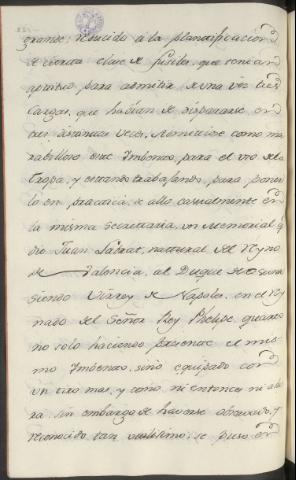 grande; reducido á la plantificacion
de cierta clase de fusiles, que tenian
aptitud para admitir de una vez tres
Cargas, que habian de dispararse en
tres distintas veces, admitiose como ma
rabilloso este Imbento, para el uso de la
Tropa, y estando trabajando, para poner
lo en practica, se allo casualmente en
la misma Secretaria, un Memorial q
dio Juan Sabrat, natural del Reyno
de Valencia, al Duque de Osuna
siendo Virrey de Napoles, en el Rey
nado del Señor Rey Phelipe quarto
no solo haciendo presente el mis
mo Imbento, sino equipado con
un tiro mas, y como ni entonces ni aho
ra sin embargo de haverse observado, y
reconocido tan utilisimo, se puso en